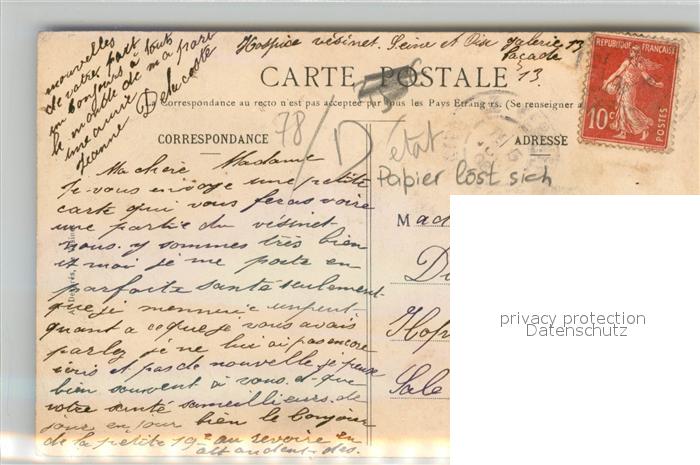 Hospice vésinet. Seine et Oise galerie 13
façade
13.
CARTE POSTALE
Correspondance au recto n'est pas acceptée par tous les Pays Etrangers. (Se renseigner a
CORRESPONDANCE
ADRESSE
REPUBLIQUE FRANÇAISE
10c
POSTES
78/D
état
Papier löst sich
Ma chère Madame
Je vous envoye une petite
carte qui vous feras voire
une partie du vésinet
nous. y sommes très bien
et moi je me porte en
parfaite santé seulement
que je mennuie unpeut
quant a ceque je vous avais
parlez je ne lui ai pas encore
écris et pas de nouvelle je pense
bien souvent à vous. et que
votre santé sameilleurs. de
jour en jour bien le bonjour
de la petite 19e au revoire en
attendent des.
nouvelles
de votre part
un bonjours à tout
le monde de ma part
une amie
Jeanne Delacoste
Mad
Du
Hop
Sale
privacy protection
Datenschutz